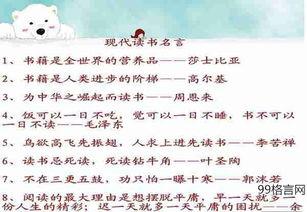 现代读书名言
1、书籍是全世界的营养品——莎士比亚
2、书籍是人类进步的阶梯——高尔基
3、为中华之崛起而读书——周恩来
4、饭可以一日不吃，觉可以一日不睡，书不可以一日不读——毛泽东
5、鸟欲高飞先振翅，人求上进先读书——李苦禅
6、读书忌死读，死读钻牛角——叶圣陶
7、不在三更五鼓，功只怕一曝十寒——郭沫若
8、阅读的最大理由是想摆脱平庸，早一天就多一份人生的精彩；迟一天就多一天平庸的困扰——余
99格言网